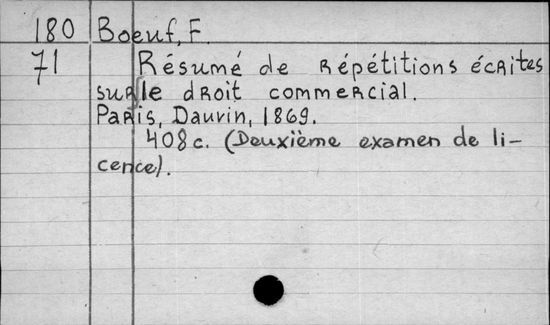 180 Boeuf, F.
71 Résumé de répétitions écrites
sur le droit commercial.
Paris, Dauvin, 1869.
408c. (Deuxième examen de li-
cence).